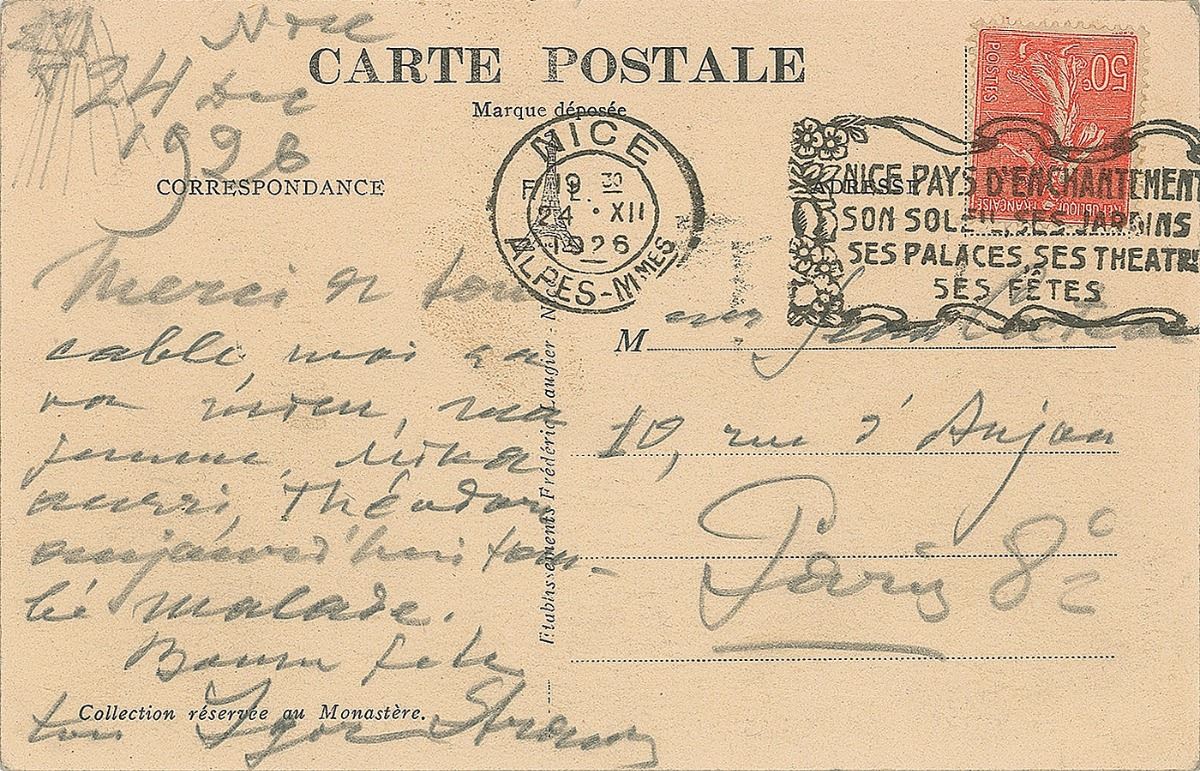 Nice
24 Dec
1926
CARTE POSTALE
Marque déposée
CORRESPONDANCE
ADRESSE
NICE
19 30
24 · XII
1926
ALPES-MMES
NICE PAYS D'ENCHANTEMENT
SON SOLEIL, SES JARDINS
SES PALACES, SES THEATR
SES FÊTES
50c
POSTES
REPUBLIQUE FRANÇAISE
Merci de ton
cable, moi ça
va mieu, ma
femme, Mika
aussi, Théodore
aujourd'hui tom-
bé malade.
Bonne fête
ton Igor Straw
M
Jean Cocteau
10, rue d'Anjou
Paris 8e
Etablissements Frédéric Laugier - N
Collection réservée au Monastère.